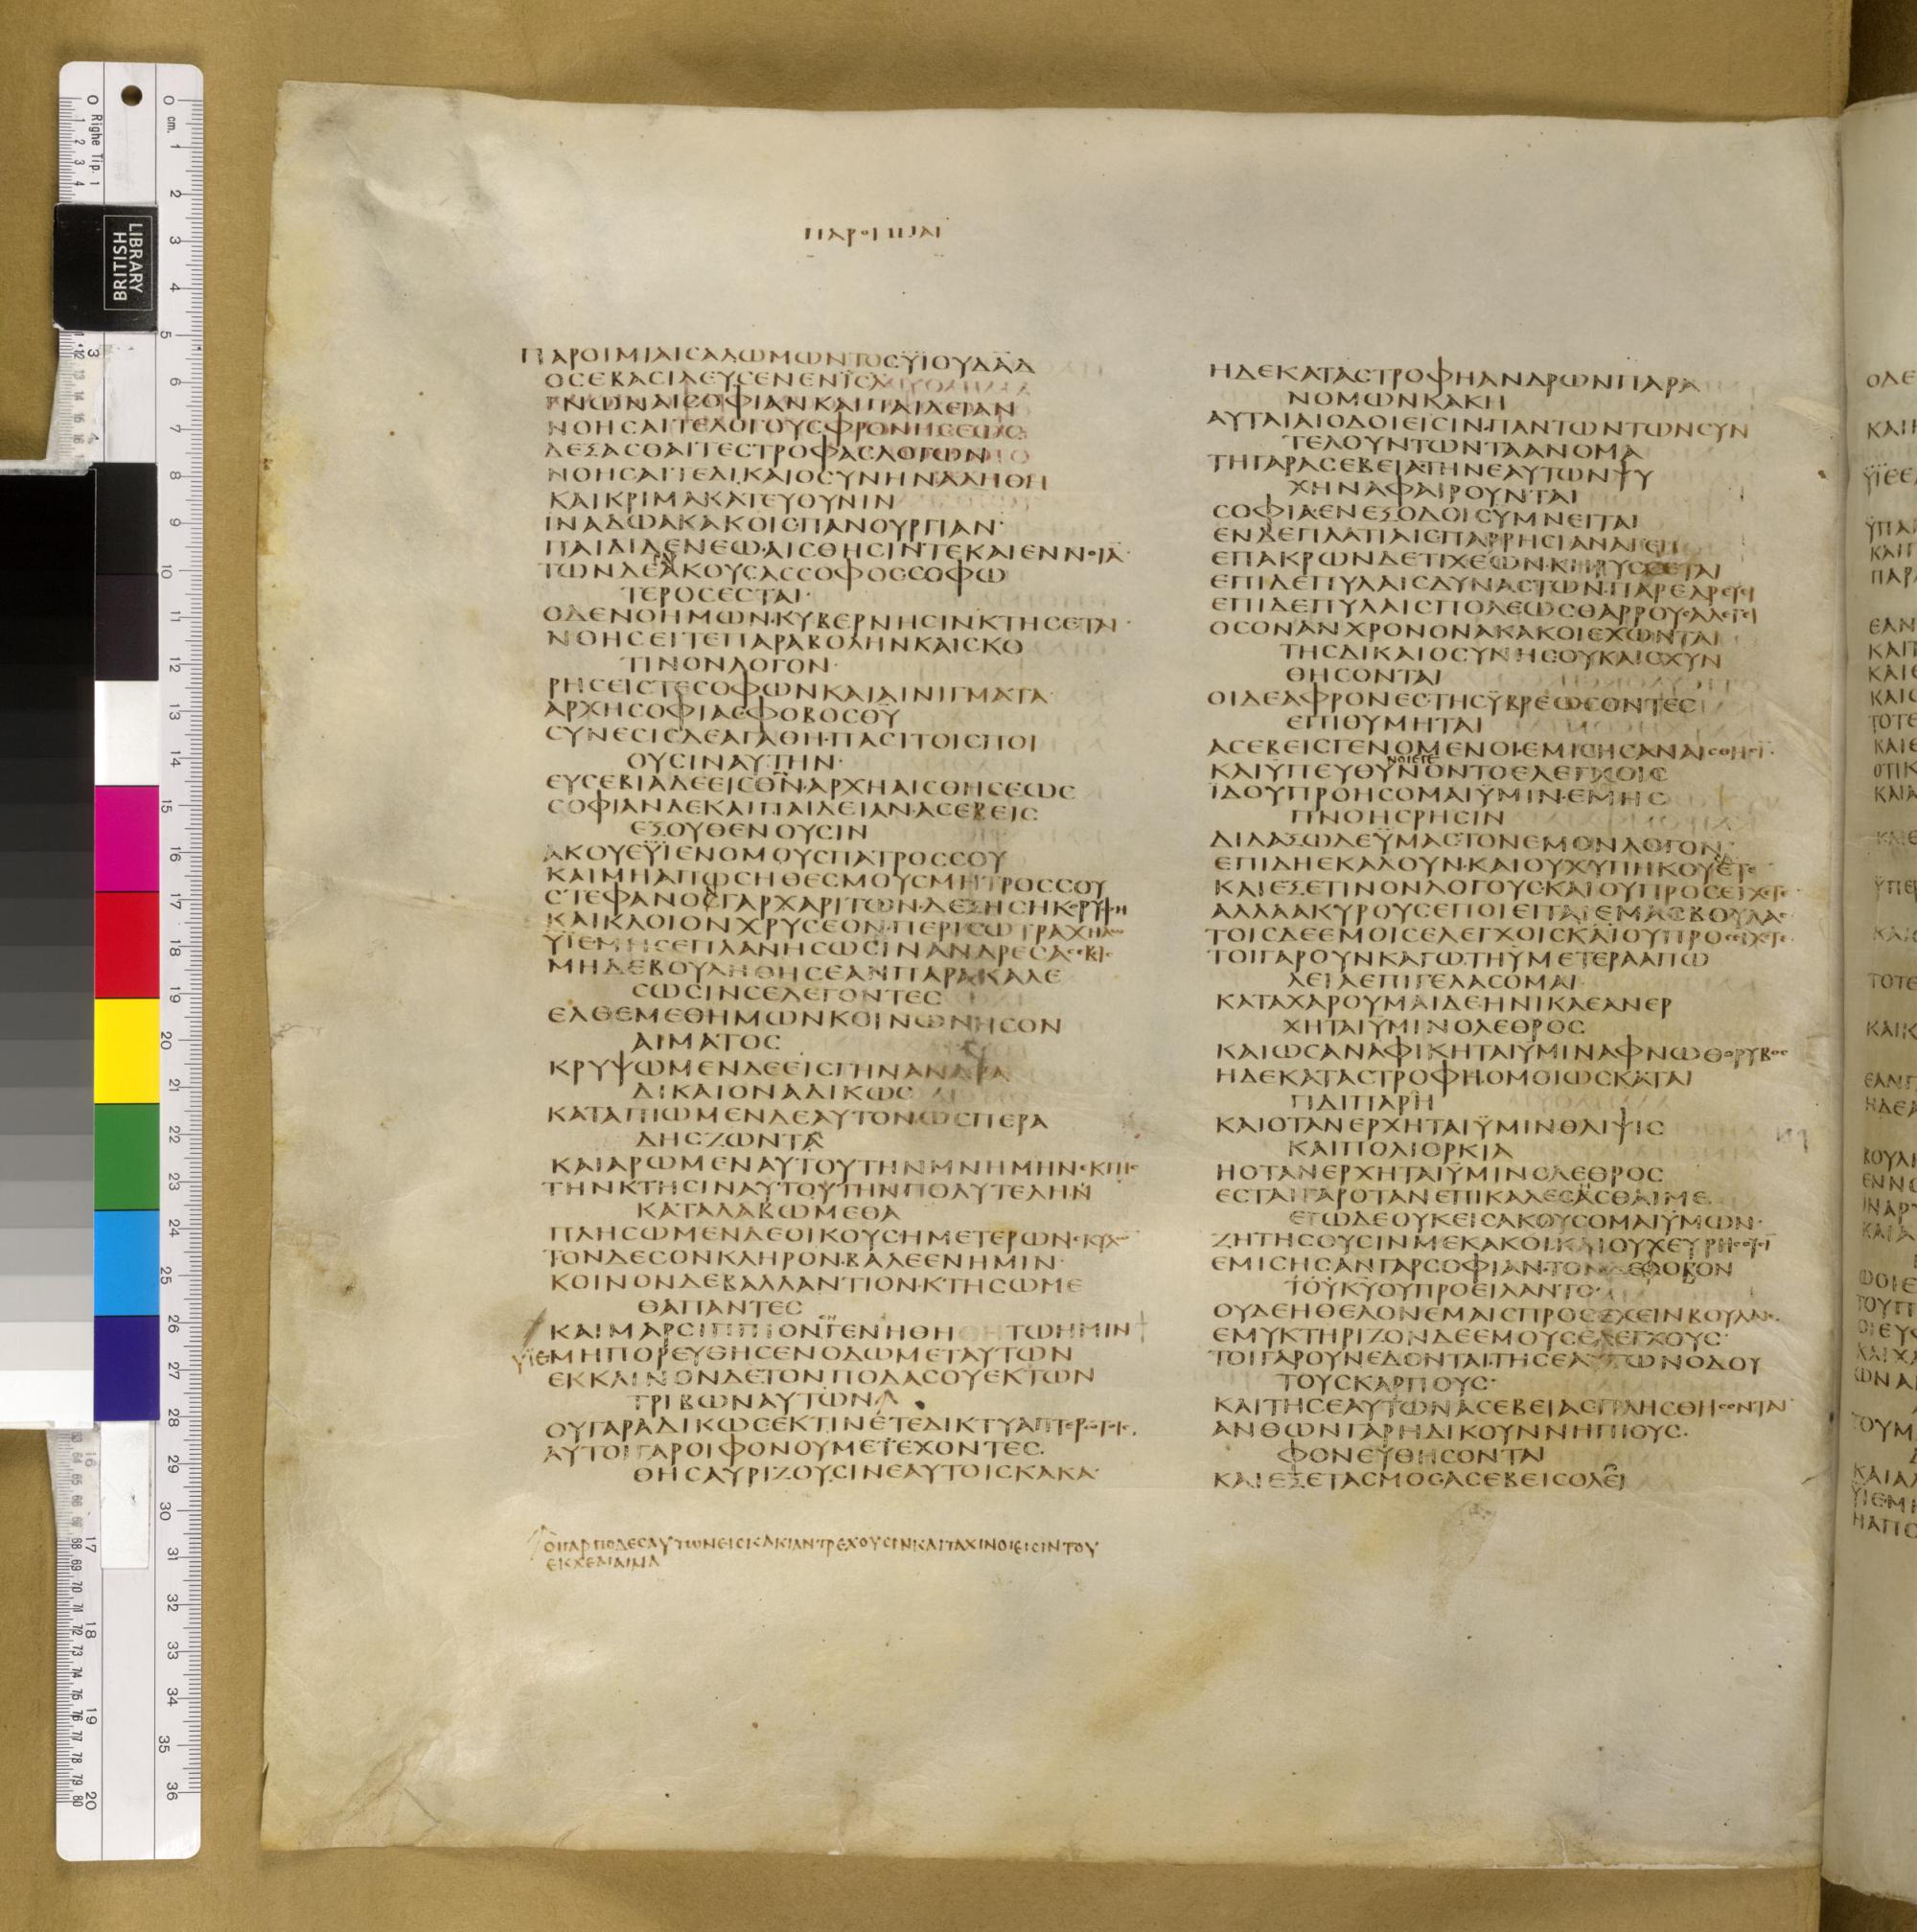 ΠΑΡΟΙΜΙΑΙ
ΠΑΡΟΙΜΙΑΙϹΑΛΩΜΩΝΤΟϹΫΙΟΥΔΑΔ
ΟϹΕΒΑϹΙΛΕΥϹΕΝΕΝΙϹΛ
ΓΝΩΝΑΙϹΟΦΙΑΝΚΑΙΠΑΙΔΕΙΑΝ
ΝΟΗϹΑΙΤΕΛΟΓΟΥϹΦΡΟΝΗϹΕΩϹ
ΔΕΞΑϹΘΑΙΤΕϹΤΡΟΦΑϹΛΟΓΩΝ
ΝΟΗϹΑΙΤΕΔΙΚΑΙΟϹΥΝΗΝΑΛΗΘΗ
ΚΑΙΚΡΙΜΑΚΑΤΕΥΘΥΝΙΝ
ΙΝΑΔΩΑΚΑΚΟΙϹΠΑΝΟΥΡΓΙΑΝ·
ΠΑΙΔΙΔΕΝΕΩ·ΑΙϹΘΗϹΙΝΤΕΚΑΙΕΝΝΟΙΑ·
ΤΩΝΔΕΑΚΟΥϹΑϹϹΟΦΟϹϹΟΦΩ
ΤΕΡΟϹΕϹΤΑΙ·
ΟΔΕΝΟΗΜΩΝ·ΚΥΒΕΡΝΗϹΙΝΚΤΗϹΕΤΑΙ·
ΝΟΗϹΕΙΤΕΠΑΡΑΒΟΛΗΝΚΑΙϹΚΟ
ΤΙΝΟΝΛΟΓΟΝ·
ΡΗϹΕΙϹΤΕϹΟΦΩΝΚΑΙΑΙΝΙΓΜΑΤΑ·
ΑΡΧΗϹΟΦΙΑϹΦΟΒΟϹΘΥ
ϹΥΝΕϹΙϹΔΕΑΓΑΘΗ·ΠΑϹΙΤΟΙϹΠΟΙ
ΟΥϹΙΝΑΥΤΗΝ·
ΕΥϹΕΒΙΑΔΕΕΙϹΘΝ·ΑΡΧΗΑΙϹΘΗϹΕΩϹ
ϹΟΦΙΑΝΔΕΚΑΙΠΑΙΔΕΙΑΝΑϹΕΒΕΙϹ
ΕΞΟΥΘΕΝΟΥϹΙΝ
ΑΚΟΥΕΫΙΕΝΟΜΟΥϹΠΑΤΡΟϹϹΟΥ
ΚΑΙΜΗΑΠΩϹΗΘΕϹΜΟΥϹΜΗΤΡΟϹϹΟΥ
ϹΤΕΦΑΝΟΝΓΑΡΧΑΡΙΤΩΝ·ΔΕΞΗϹΗΚΟΡΥΦΗ
ΚΑΙΚΛΟΙΟΝΧΡΥϹΕΟΝ·ΠΕΡΙϹΩΤΡΑΧΗΛΩ
ΥΪΕΜΗϹΕΠΛΑΝΗϹΩϹΙΝΑΝΔΡΕϹΑϹΕΒΙϹ
ΜΗΔΕΒΟΥΛΗΘΗϹΕΑΝΠΑΡΑΚΑΛΕ
ϹΩϹΙΝϹΕΛΕΓΟΝΤΕϹ
ΕΛΘΕΜΕΘΗΜΩΝΚΟΙΝΩΝΗϹΟΝ
ΑΙΜΑΤΟϹ
ΚΡΥΨΩΜΕΝΔΕΕΙϹΓΗΝΑΝΔΡΑ
ΔΙΚΑΙΟΝΑΔΙΚΩϹ
ΚΑΤΑΠΙΩΜΕΝΔΕΑΥΤΟΝΩϹΠΕΡΑ
ΔΗϹΖΩΝΤΑ
ΚΑΙΑΡΩΜΕΝΑΥΤΟΥΤΗΝΜΝΗΜΗΝ
ΤΗΝΚΤΗϹΙΝΑΥΤΟΥΤΗΝΠΟΛΥΤΕΛΗΝ
ΚΑΤΑΛΑΒΩΜΕΘΑ
ΠΛΗϹΩΜΕΝΔΕΟΙΚΟΥϹΗΜΕΤΕΡΩΝ
ΤΟΝΔΕϹΟΝΚΛΗΡΟΝ·ΒΑΛΕΕΝΗΜΙΝ·
ΚΟΙΝΟΝΔΕΒΑΛΛΑΝΤΙΟΝ·ΚΤΗϹΩΜΕ
ΘΑΠΑΝΤΕϹ
ΚΑΙΜΑΡϹΙΠΠΙΟΝΓΕΝΗΘΗΤΩΗΜΙΝ
ΥΪΕΜΗΠΟΡΕΥΘΗϹΕΝΟΔΩΜΕΤΑΥΤΩΝ
ΕΚΚΛΙΝΟΝΔΕΤΟΝΠΟΔΑϹΟΥΕΚΤΩΝ
ΤΡΙΒΩΝΑΥΤΩΝ
ΟΥΓΑΡΑΔΙΚΩϹΕΚΤΙΝΕΤΕΔΙΚΤΥΑΠΤΕΡΩΤΟΙϹ
ΑΥΤΟΙΓΑΡΟΙΦΟΝΟΥΜΕΤΕΧΟΝΤΕϹ·
ΘΗϹΑΥΡΙΖΟΥϹΙΝΕΑΥΤΟΙϹΚΑΚΑ·
ΟΙΓΑΡΠΟΔΕϹΑΥΤΩΝΕΙϹΚΑΚΙΑΝΤΡΕΧΟΥϹΙΝΚΑΙΤΑΧΙΝΟΙΕΙϹΙΝΤΟΥ
ΕΚΧΕΑΙΑΙΜΑ
ΗΔΕΚΑΤΑϹΤΡΟΦΗΑΝΔΡΩΝΠΑΡΑ
ΝΟΜΩΝΚΑΚΗ
ΑΥΤΑΙΑΙΟΔΟΙΕΙϹΙΝ·ΠΑΝΤΩΝΤΩΝϹΥΝ
ΤΕΛΟΥΝΤΩΝΤΑΑΝΟΜΑ
ΤΗΓΑΡΑϹΕΒΕΙΑΤΗΝΕΑΥΤΩΝΨΥ
ΧΗΝΑΦΑΙΡΟΥΝΤΑΙ
ϹΟΦΙΑΕΝΕΞΟΔΟΙϹΥΜΝΕΙΤΑΙ
ΕΝΔΕΠΛΑΤΙΑΙϹΠΑΡΡΗϹΙΑΝΑΓΕΙ
ΕΠΑΚΡΩΝΔΕΤΙΧΕΩΝ·ΚΗΡΥϹϹΕΤΑΙ
ΕΠΙΔΕΠΥΛΑΙϹΔΥΝΑϹΤΩΝ·ΠΑΡΕΔΡΕΥΕΙ
ΕΠΙΔΕΠΥΛΑΙϹΠΟΛΕΩϹΘΑΡΡΟΥϹΑΛΕΓΕΙ
ΟϹΟΝΑΝΧΡΟΝΟΝΑΚΑΚΟΙΕΧΩΝΤΑΙ
ΤΗϹΔΙΚΑΙΟϹΥΝΗϹΟΥΚΑΙϹΧΥΝ
ΘΗϹΟΝΤΑΙ
ΟΙΔΕΑΦΡΟΝΕϹ·ΤΗϹΫΒΡΕΩϹΟΝΤΕϹ
ΕΠΙΘΥΜΗΤΑΙ
ΑϹΕΒΕΙϹΓΕΝΟΜΕΝΟΙ·ΕΜΙϹΗϹΑΝΑΙϹΘΗϹΙ·
ΚΑΙΫΠΕΥΘΥΝΟΝΤΟΕΛΕΓΧΟΙϹ
ΪΔΟΥΠΡΟΗϹΟΜΑΙΫΜΙΝ·ΕΜΗϹ
ΠΝΟΗϹΡΗϹΙΝ
ΔΙΔΑΞΩΔΕΫΜΑϹΤΟΝΕΜΟΝΛΟΓΟΝ·
ΕΠΙΔΗΕΚΑΛΟΥΝ·ΚΑΙΟΥΧΥΠΗΚΟΥΕΤΕ·
ΚΑΙΕΞΕΤΙΝΟΝΛΟΓΟΥϹΚΑΙΟΥΠΡΟϹΕΙΧΕΤΕ·
ΑΛΛΑΑΚΥΡΟΥϹΕΠΟΙΕΙΤΑΙΕΜΑϹΒΟΥΛΑϹ
ΤΟΙϹΔΕΕΜΟΙϹΕΛΕΓΧΟΙϹΚΑΙΟΥΠΡΟϹΕΙΧΕΤΕ·
ΤΟΙΓΑΡΟΥΝΚΑΓΩ·ΤΗΫΜΕΤΕΡΑΑΠΩ
ΛΕΙΑΕΠΙΓΕΛΑϹΟΜΑΙ·
ΚΑΤΑΧΑΡΟΥΜΑΙΔΕΗΝΙΚΑΕΑΝΕΡ
ΧΗΤΑΙΫΜΙΝΟΛΕΘΡΟϹ
ΚΑΙΩϹΑΝΑΦΙΚΗΤΑΙΫΜΙΝΑΦΝΩΘΟΡΥΒΟϹ
ΗΔΕΚΑΤΑϹΤΡΟΦΗ·ΟΜΟΙΩϹΚΑΤΑΙ
ΓΙΔΙΠΑΡΗ
ΚΑΙΟΤΑΝΕΡΧΗΤΑΙΫΜΙΝΘΛΙΨΙϹ
ΚΑΙΠΟΛΙΟΡΚΙΑ
ΗΟΤΑΝΕΡΧΗΤΑΙΫΜΙΝΟΛΕΘΡΟϹ
ΕϹΤΑΙΓΑΡΟΤΑΝΕΠΙΚΑΛΕϹΑϹΘΑΙΜΕ
ΕΓΩΔΕΟΥΚΕΙϹΑΚΟΥϹΟΜΑΙΫΜΩΝ·
ΖΗΤΗϹΟΥϹΙΝΜΕΚΑΚΟΙ·ΚΑΙΟΥΧΕΥΡΗϹΟΥϹΙ
ΕΜΙϹΗϹΑΝΓΑΡϹΟΦΙΑΝ·ΤΟΝΔΕΦΟΒΟΝ
ΤΟΥΚΥΟΥΠΡΟΕΙΛΑΝΤΟ·
ΟΥΔΕΗΘΕΛΟΝΕΜΑΙϹΠΡΟϹΕΧΕΙΝΒΟΥΛΑΙϹ·
ΕΜΥΚΤΗΡΙΖΟΝΔΕΕΜΟΥϹΕΛΕΓΧΟΥϹ·
ΤΟΙΓΑΡΟΥΝΕΔΟΝΤΑΙ·ΤΗϹΕΑΥΤΩΝΟΔΟΥ
ΤΟΥϹΚΑΡΠΟΥϹ·
ΚΑΙΤΗϹΕΑΥΤΩΝΑϹΕΒΕΙΑϹΠΛΗϹΘΗϹΟΝΤΑΙ·
ΑΝΘΩΝΓΑΡΗΔΙΚΟΥΝΝΗΠΙΟΥϹ·
ΦΟΝΕΥΘΗϹΟΝΤΑΙ
ΚΑΙΕΞΕΤΑϹΜΟϹΑϹΕΒΕΙϹΟΛΕΙ